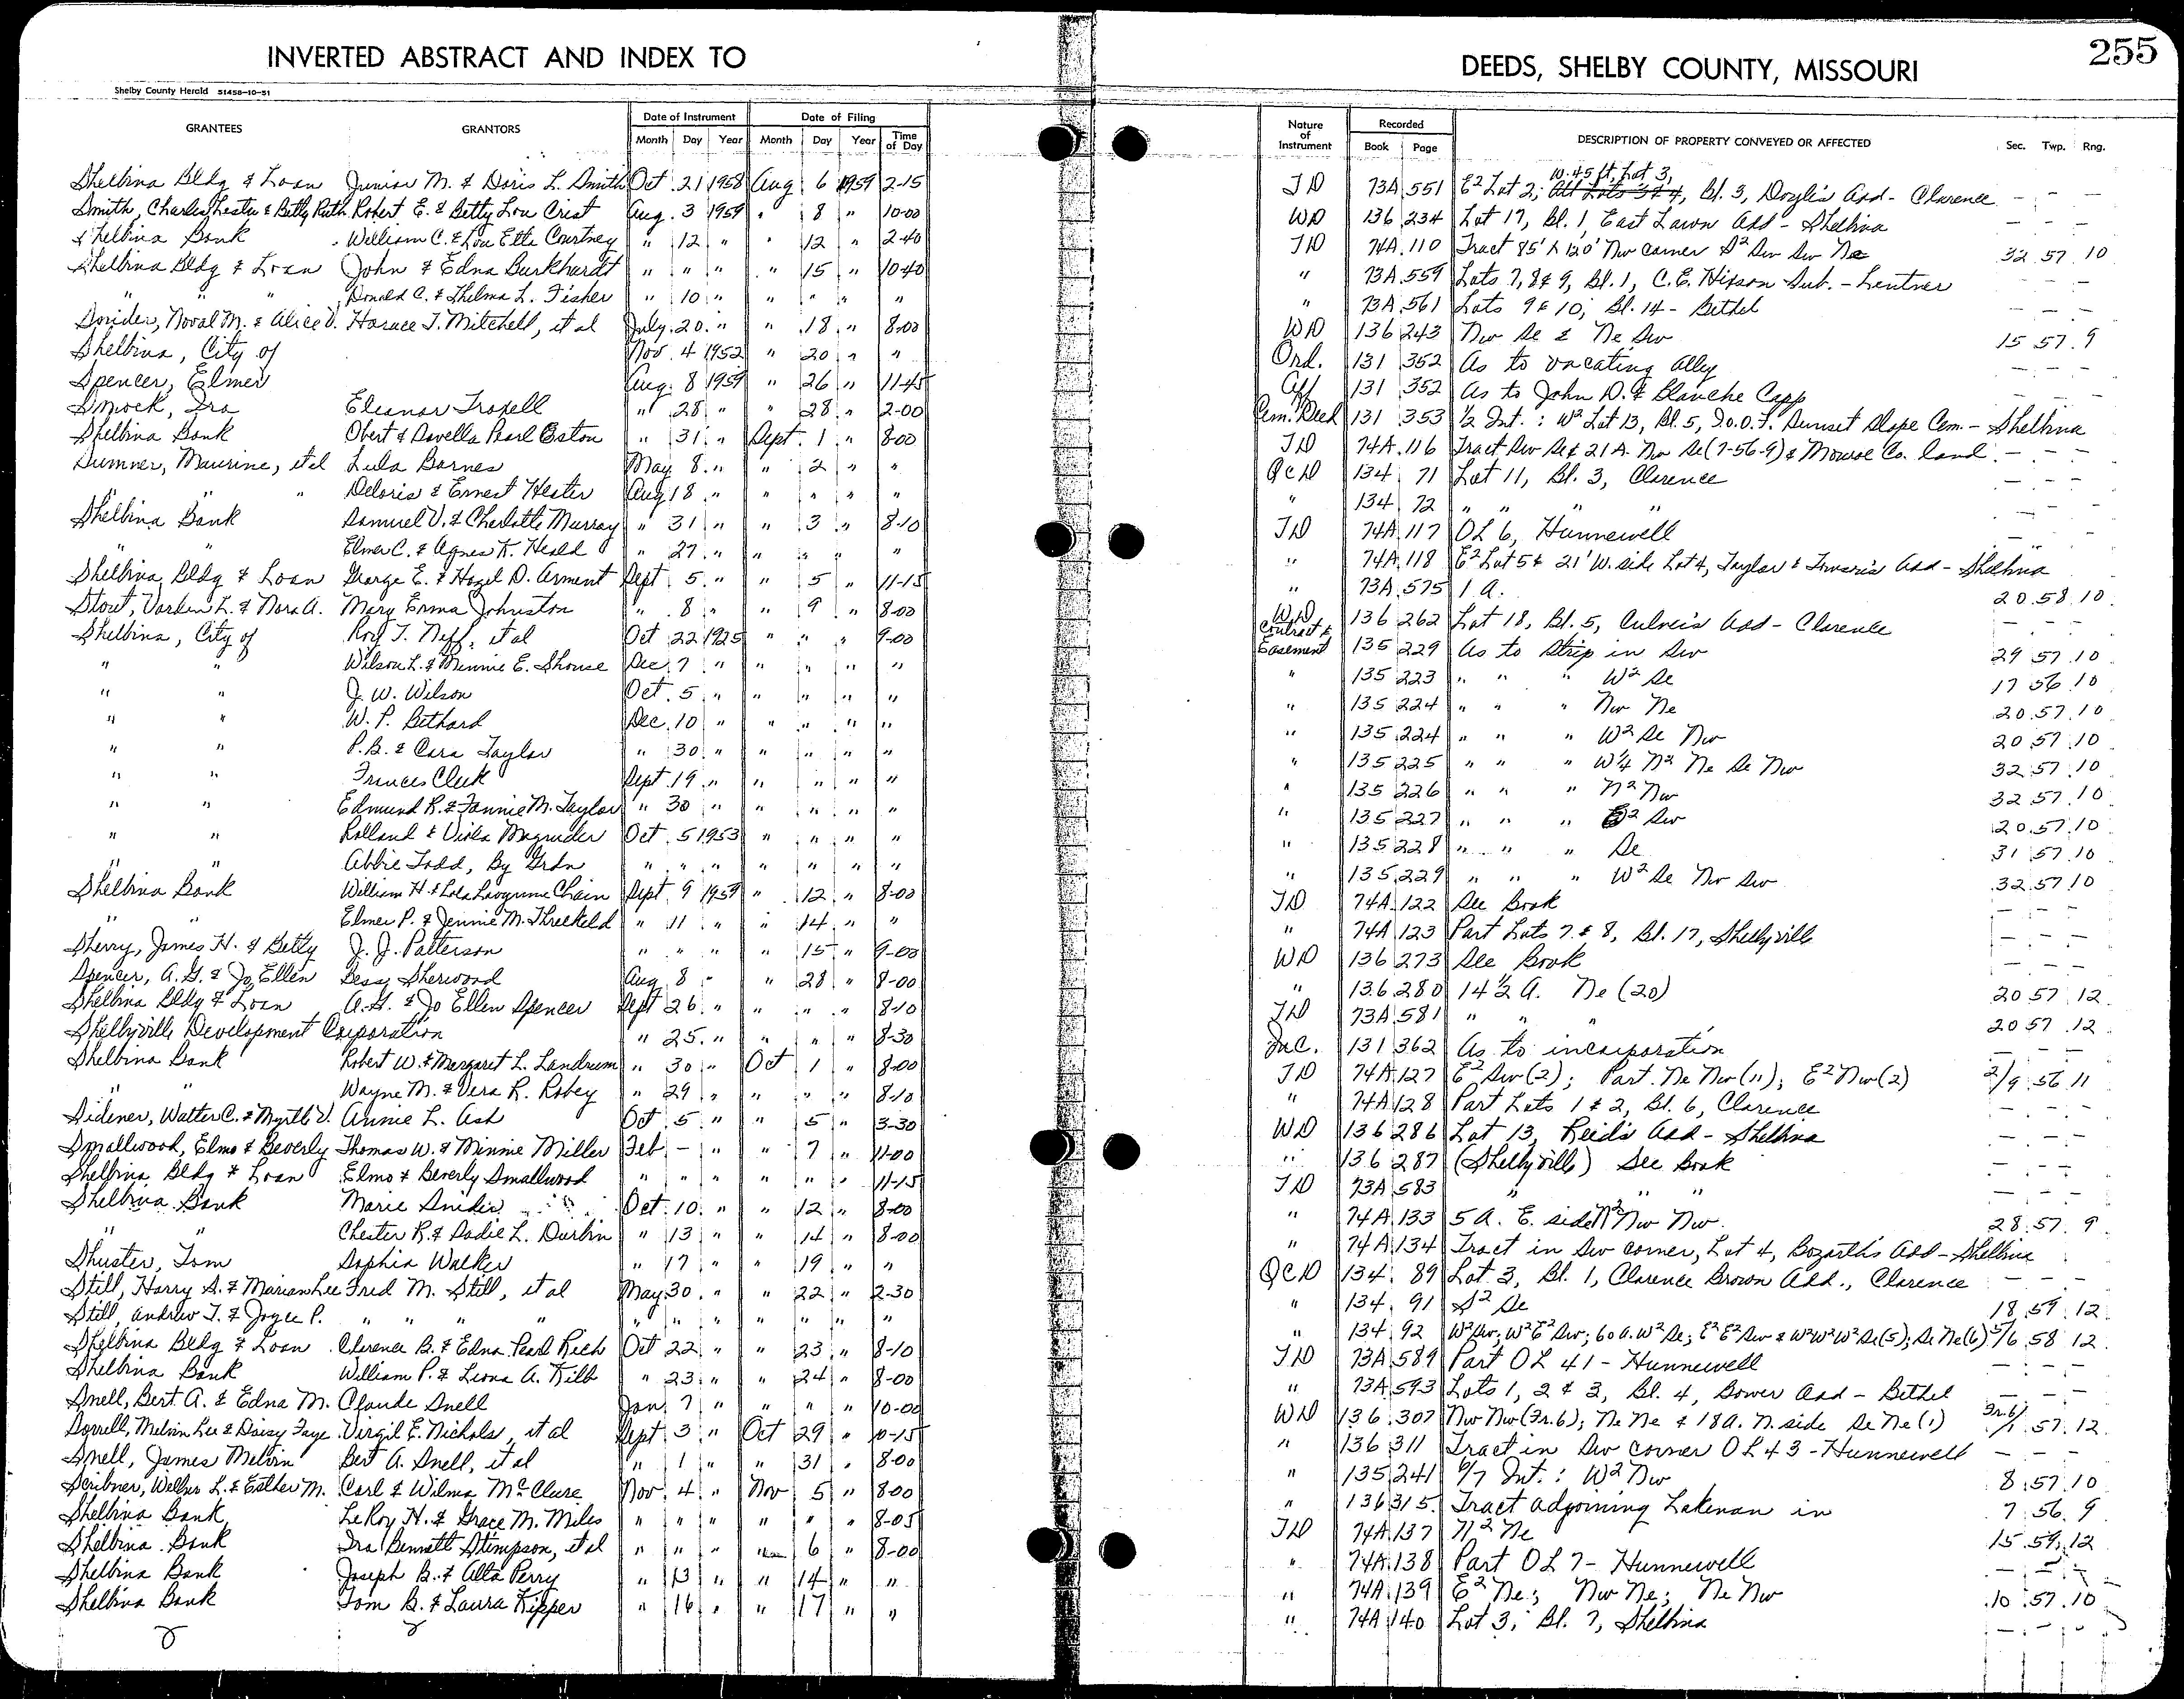 INVERTED ABSTRACT AND INDEX TO
DEEDS, SHELBY COUNTY, MISSOURI
255
Shelby County Herald 51458-10-51
GRANTEES GRANTORS Date of Instrument Month Day Year Date of Filing Month Day Year Time of Day
Nature of Instrument Recorded Book Page DESCRIPTION OF PROPERTY CONVEYED OR AFFECTED Sec. Twp. Rng.
Shelbina Bldg & Loan Junior M. & Doris L. Smith Oct 21 1958 Aug 6 1959 2-15 T D 73A 551 E2 Lot 2; W. 45 ft. Lot 3, Bl. 3, Doyle's Add - Clarence - - -
Smith, Charles Lester & Betty Ruth Robert E. & Betty Lou Crist Aug. 3 1959 " 8 " 10-00 WD 136 234 Lot 17, Bl. 1, East Lawn Add - Shelbina - - -
Shelbina Bank William C. & Lou Etta Courtney " 12 " " 12 " 2-40 TD 74A 110 Tract 85' X 120' Nw corner S2 Sw Sw Ne 32 57 10
Shelbina Bldg & Loan John & Edna Burkhardt " " " " 15 " 10-40 " 73A 559 Lots 7, 8 & 9, Bl. 1, C.E. Hixson Sub. - Lentner - - -
" " " Donald C. & Thelma L. Fisher " 10 " " " " " " 73A 561 Lots 9 & 10, Bl. 14 - Bethel - - -
Snider, Noval M. & Alice V. Horace T. Mitchell, et al July 20 " " 18 " 8-00 WD 136 243 Nw Se & Ne Sw 15 57 9
Shelbina, City of Nov. 4 1952 " 20 " " Ord. 131 352 As to vacating Ally - - -
Spencer, Elmer Aug. 8 1959 " 26 " 11-45 Aff 131 352 As to John D. & Blanche Capp - - -
Smock, Ira Eleanor Troxell " 28 " " 28 " 2-00 Cem. Deed 131 353 1/2 Int.: W2 Lot 13, Bl. 5, I.O.O.F. Sunset Slope Cem. - Shelbina
Shelbina Bank Obert & Davella Pearl Easton " 31 " Sept. 1 " 8-00 TD 74A 116 Tract Sw Se & 21 A. Nw Se (7-56-9) & Monroe Co. land. - - -
Sumner, Maurine, et al Lula Barnes May 8 " " 2 " " QCD 134 71 Lot 11, Bl. 3, Clarence - - -
" " " Deloris & Ernest Hester Aug 18 " " " " " " 134 72 " " " " - - -
Shelbina Bank Samuel V. & Charlotte Murray " 31 " " 3 " 8-10 TD 74A 117 OL 6, Hunnewell - - -
" " Elmer C. & Agnes K. Heald " 27 " " " " " " 74A 118 E2 Lot 5 & 21' W. side Lot 4, Taylor & Add - Shelbina
Shelbina Bldg & Loan George E. & Hazel D. Arment Sept 5 " " 5 " 11-15 " 73A 575 1 A. 20 58 10
Stout, L. & Nora A. Mary Erma Johnston " 8 " " 9 " 8-00 WD 136 262 Lot 18, Bl. 5, Culver's Add - Clarence - - -
Shelbina, City of Roy T. Neff, et al Oct 22 1925 " " " 9-00 Contract & Easement 135 229 As to strip in Sw 29 57 10
" " Wilson L. & Minnie E. Shouse Dec. 7 " " " " " " 135 223 " " " W2 Se 17 56 10
" " J. W. Wilson Oct. 5 " " " " " " 135 224 " " " Nw Ne 20 57 10
" " W. P. Bethard Dec. 10 " " " " " " 135 224 " " " W2 Se Nw 20 57 10
" " P.B. & Cora Taylor " 30 " " " " " " 135 225 " " " W1/4 N2 Ne Se Nw 32 57 10
" " Frances Cleek Sept 19 " " " " " " 135 226 " " " N2 Nw 32 57 10
" " Edmund R. & Fannie M. Taylor " 30 " " " " " " 135 227 " " " E2 Sw 20 57 10
" " Rolland & Viola Magruder Oct. 5 1953 " " " " " 135 228 " " " Se 31 57 10
" " Abbie Todd, By Grdn " " " " " " " " 135 229 " " " W2 Se Nw Sw 32 57 10
Shelbina Bank William H. & Lola Chain Sept. 9 1959 " 12 " 8-00 TD 74A 122 See Book - - -
" " Elmer P. & Jennie M. Threlkeld " 11 " " 14 " " " 74A 123 Part Lots 7 & 8, Bl. 17, Shelbyville - - -
Sherry, James H. & Betty J. J. Patterson " " " " 15 " 9-00 WD 136 273 See Book - - -
Spencer, A. G. & Jo Ellen Bessy Sherwood Aug 8 " " 28 " 8-00 " 136 280 14 1/2 A. Ne (20) 20 57 12
Shelbina Bldg & Loan A. G. & Jo Ellen Spencer Sept 26 " " " " 8-10 TD 73A 581 " " " 20 57 12
Shelbyville Development Corporation " 25 " " " " 8-30 Inc. 131 362 As to incorporation - - -
Shelbina Bank Robert W. & Margaret L. Landrum " 30 " Oct 1 " 8-00 TD 74A 127 E2 Sw (2); Part Ne Nw (11); E2 Nw (2) 2/9 56 11
" " Wayne M. & Vera R. Robey " 29 " " " " 8-10 " 74A 128 Part Lots 1 & 2, Bl. 6, Clarence - - -
Sidener, Walter C. & Myrtle V. Annie L. Ash Oct 5 " " 5 " 3-30 WD 136 286 Lot 13, Reid's Add - Shelbina - - -
Smallwood, Elmo & Beverly Thomas W. & Minnie Miller Feb - " " 7 " 11-00 " 136 287 (Shelbyville) See Book - - -
Shelbina Bldg & Loan Elmo & Beverly Smallwood " " " " " " 11-15 TD 73A 583 " " " - - -
Shelbina Bank Marie Snider Oct. 10 " " 12 " 8-00 " 74A 133 5 A. E. side N2 Nw Nw 28 57 9
" " Chester R. & Sadie L. Durbin " 13 " " 14 " 8-00 " 74A 134 Tract in Sw corner, Lot 4, Bozarth's Add - Shelbina
Shuster, Tom Sophia Walker " 17 " " 19 " " QCD 134 89 Lot 3, Bl. 1, Clarence Brown Add., Clarence - - -
Still, Harry S. & Marian Lee Fred M. Still, et al May 30 " " 22 " 2-30 " 134 91 S2 Se 18 59 12
Still, Andrew T. & Joyce P. " " " " " " " " " " " " 134 92 W2 Sw; W2 E2 Sw; 60 A. W2 Se; E2 E2 Sw & W2 W2 W2 Se (5); Se Ne (6) 5/6 58 12
Shelbina Bldg & Loan Clarence B. & Edna Pearl Rich Oct 22 " " 23 " 8-10 TD 73A 589 Part OL 41 - Hunnewell - - -
Shelbina Bank William P. & Leona A. Kilb " 23 " " 24 " 8-00 " 73A 593 Lots 1, 2 & 3, Bl. 4, Bower Add - Bethel - - -
Snell, Bert A. & Edna M. Claude Snell Jan. 7 " " " " 10-00 WD 136 307 Nw Nw (Fr. 6); Ne Ne & 18 A. N. side Se Ne (1) Fr. 6/1 57 12
Sorrell, Melvin Lee & Daisy Faye Virgil E. Nichols, et al Sept 3 " Oct 29 " 10-15 " 136 311 Tract in Sw corner OL 43 - Hunnewell - - -
Snell, James Melvin Bert A. Snell, et al " 1 " " 31 " 8-00 " 135 241 6/7 Int.: W2 Nw 8 57 10
Scribner, Wilbur L. & Esther M. Carl & Wilma McClure Nov. 4 " Nov 5 " 8-00 " 136 315 Tract adjoining Lakenan in 7 56 9
Shelbina Bank LeRoy H. & Grace M. Miles " " " " " " 8-05 TD 74A 137 N2 Ne 15 59 12
Shelbina Bank Ira Bennett Stimpson, et al " " " " 6 " 8-00 " 74A 138 Part OL 7 - Hunnewell - - -
Shelbina Bank Joseph B. & Alta Perry " 13 " " 14 " " " 74A 139 E2 Ne; Nw Ne; Ne Nw 10 57 10
Shelbina Bank Tom B. & Laura Kipper " 16 " " 17 " " " 74A 140 Lot 3, Bl. 7, Shelbina - - -